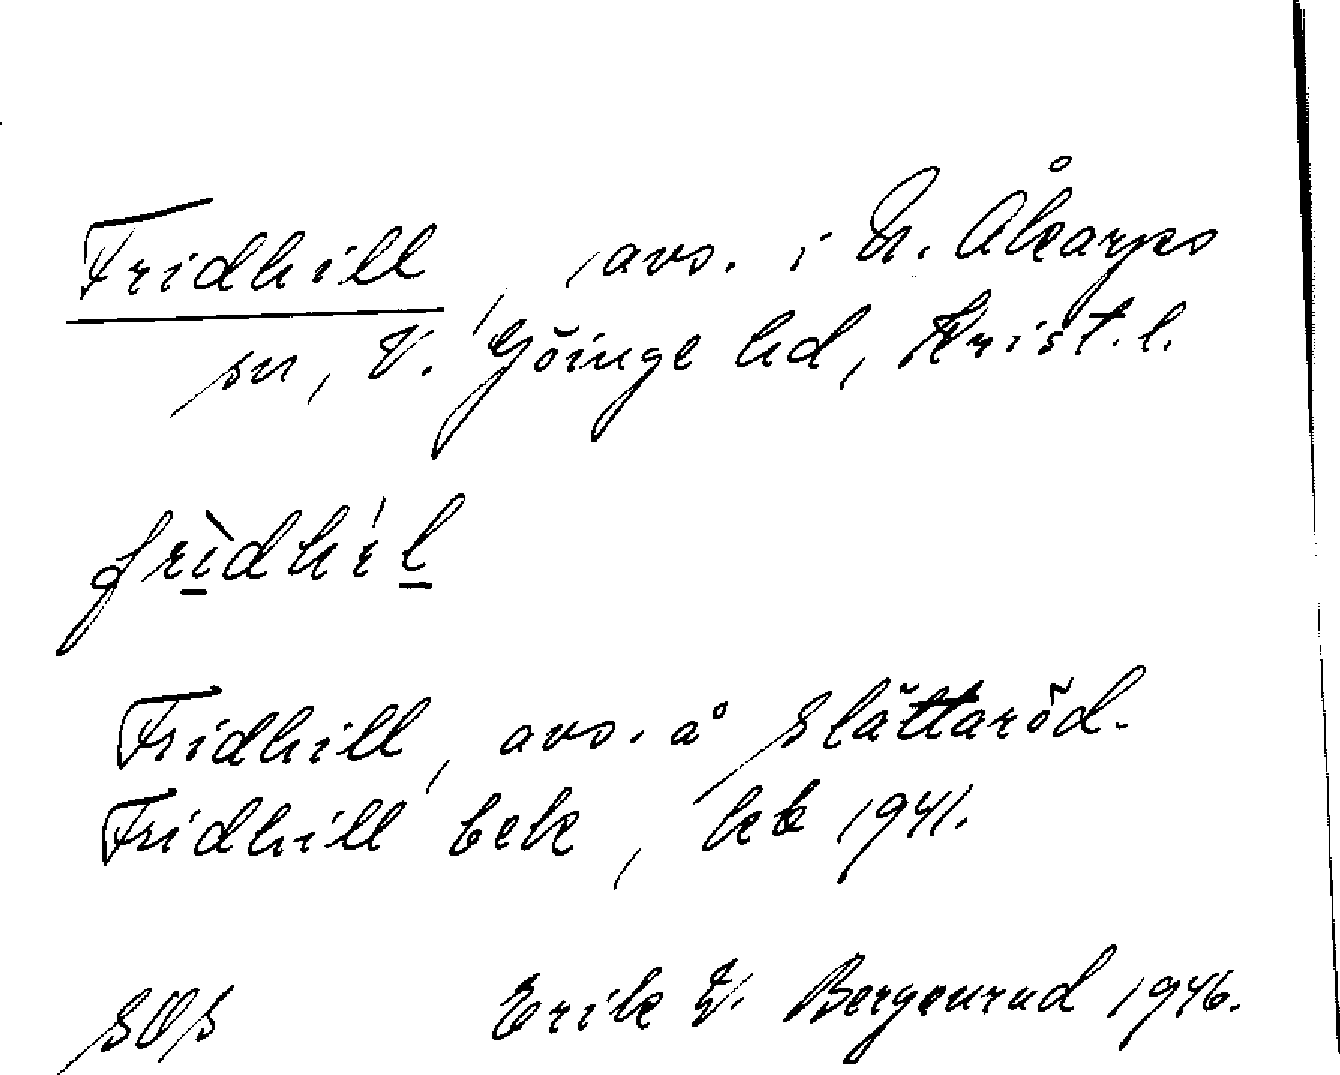 Fridhill, avs. i N. Åkarps
sn, V. Göinge hd, Krist. l.
frìdhíl
Fridhill, avs. å Slättaröd.
Fridhill bek, kbk 1941.
SOS Erik V. Bergenrud 1946.